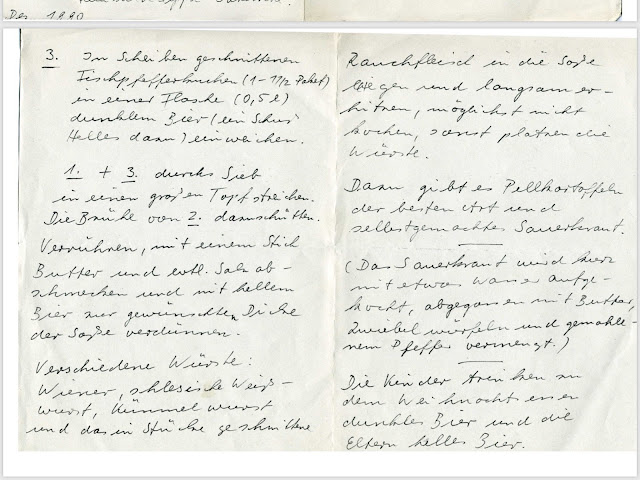 Dez. 1990
3. In Scheiben geschnittenen
Fischpfefferkuchen (1-1 1/2 Paket)
in einer Flasche (0,5 l)
dunklem Bier (ein Schuß
Helles dazu) einweichen.
1. + 3. durchs Sieb
in einen großen Topf streichen.
Die Brühe von 2. dazuschütten.
Verrühren, mit einem Stich
Butter und evtl. Salz ab-
schmecken und mit hellem
Bier zur gewünschten Dicke
der Soße verdünnen.
Verschiedene Würste:
Wiener, schlesische Weiß-
wurst, Kümmelwurst
und das in Stücke geschnittene
Rauchfleisch in die Soße
legen und langsam er-
hitzen, möglichst nicht
kochen, sonst platzen die
Würste.
Dazu gibt es Pellkartoffeln
der besten Art und
selbstgemachtes Sauerkraut.
(Das Sauerkraut wird kurz
mit etwas Wasser aufge-
kocht, abgegossen mit Butter,
Zwiebelwürfeln und gemahle-
nem Pfeffer vermengt.)
Die Kinder trinken zu
dem Weihnachtsessen
dunkles Bier und die
Eltern helles Bier.